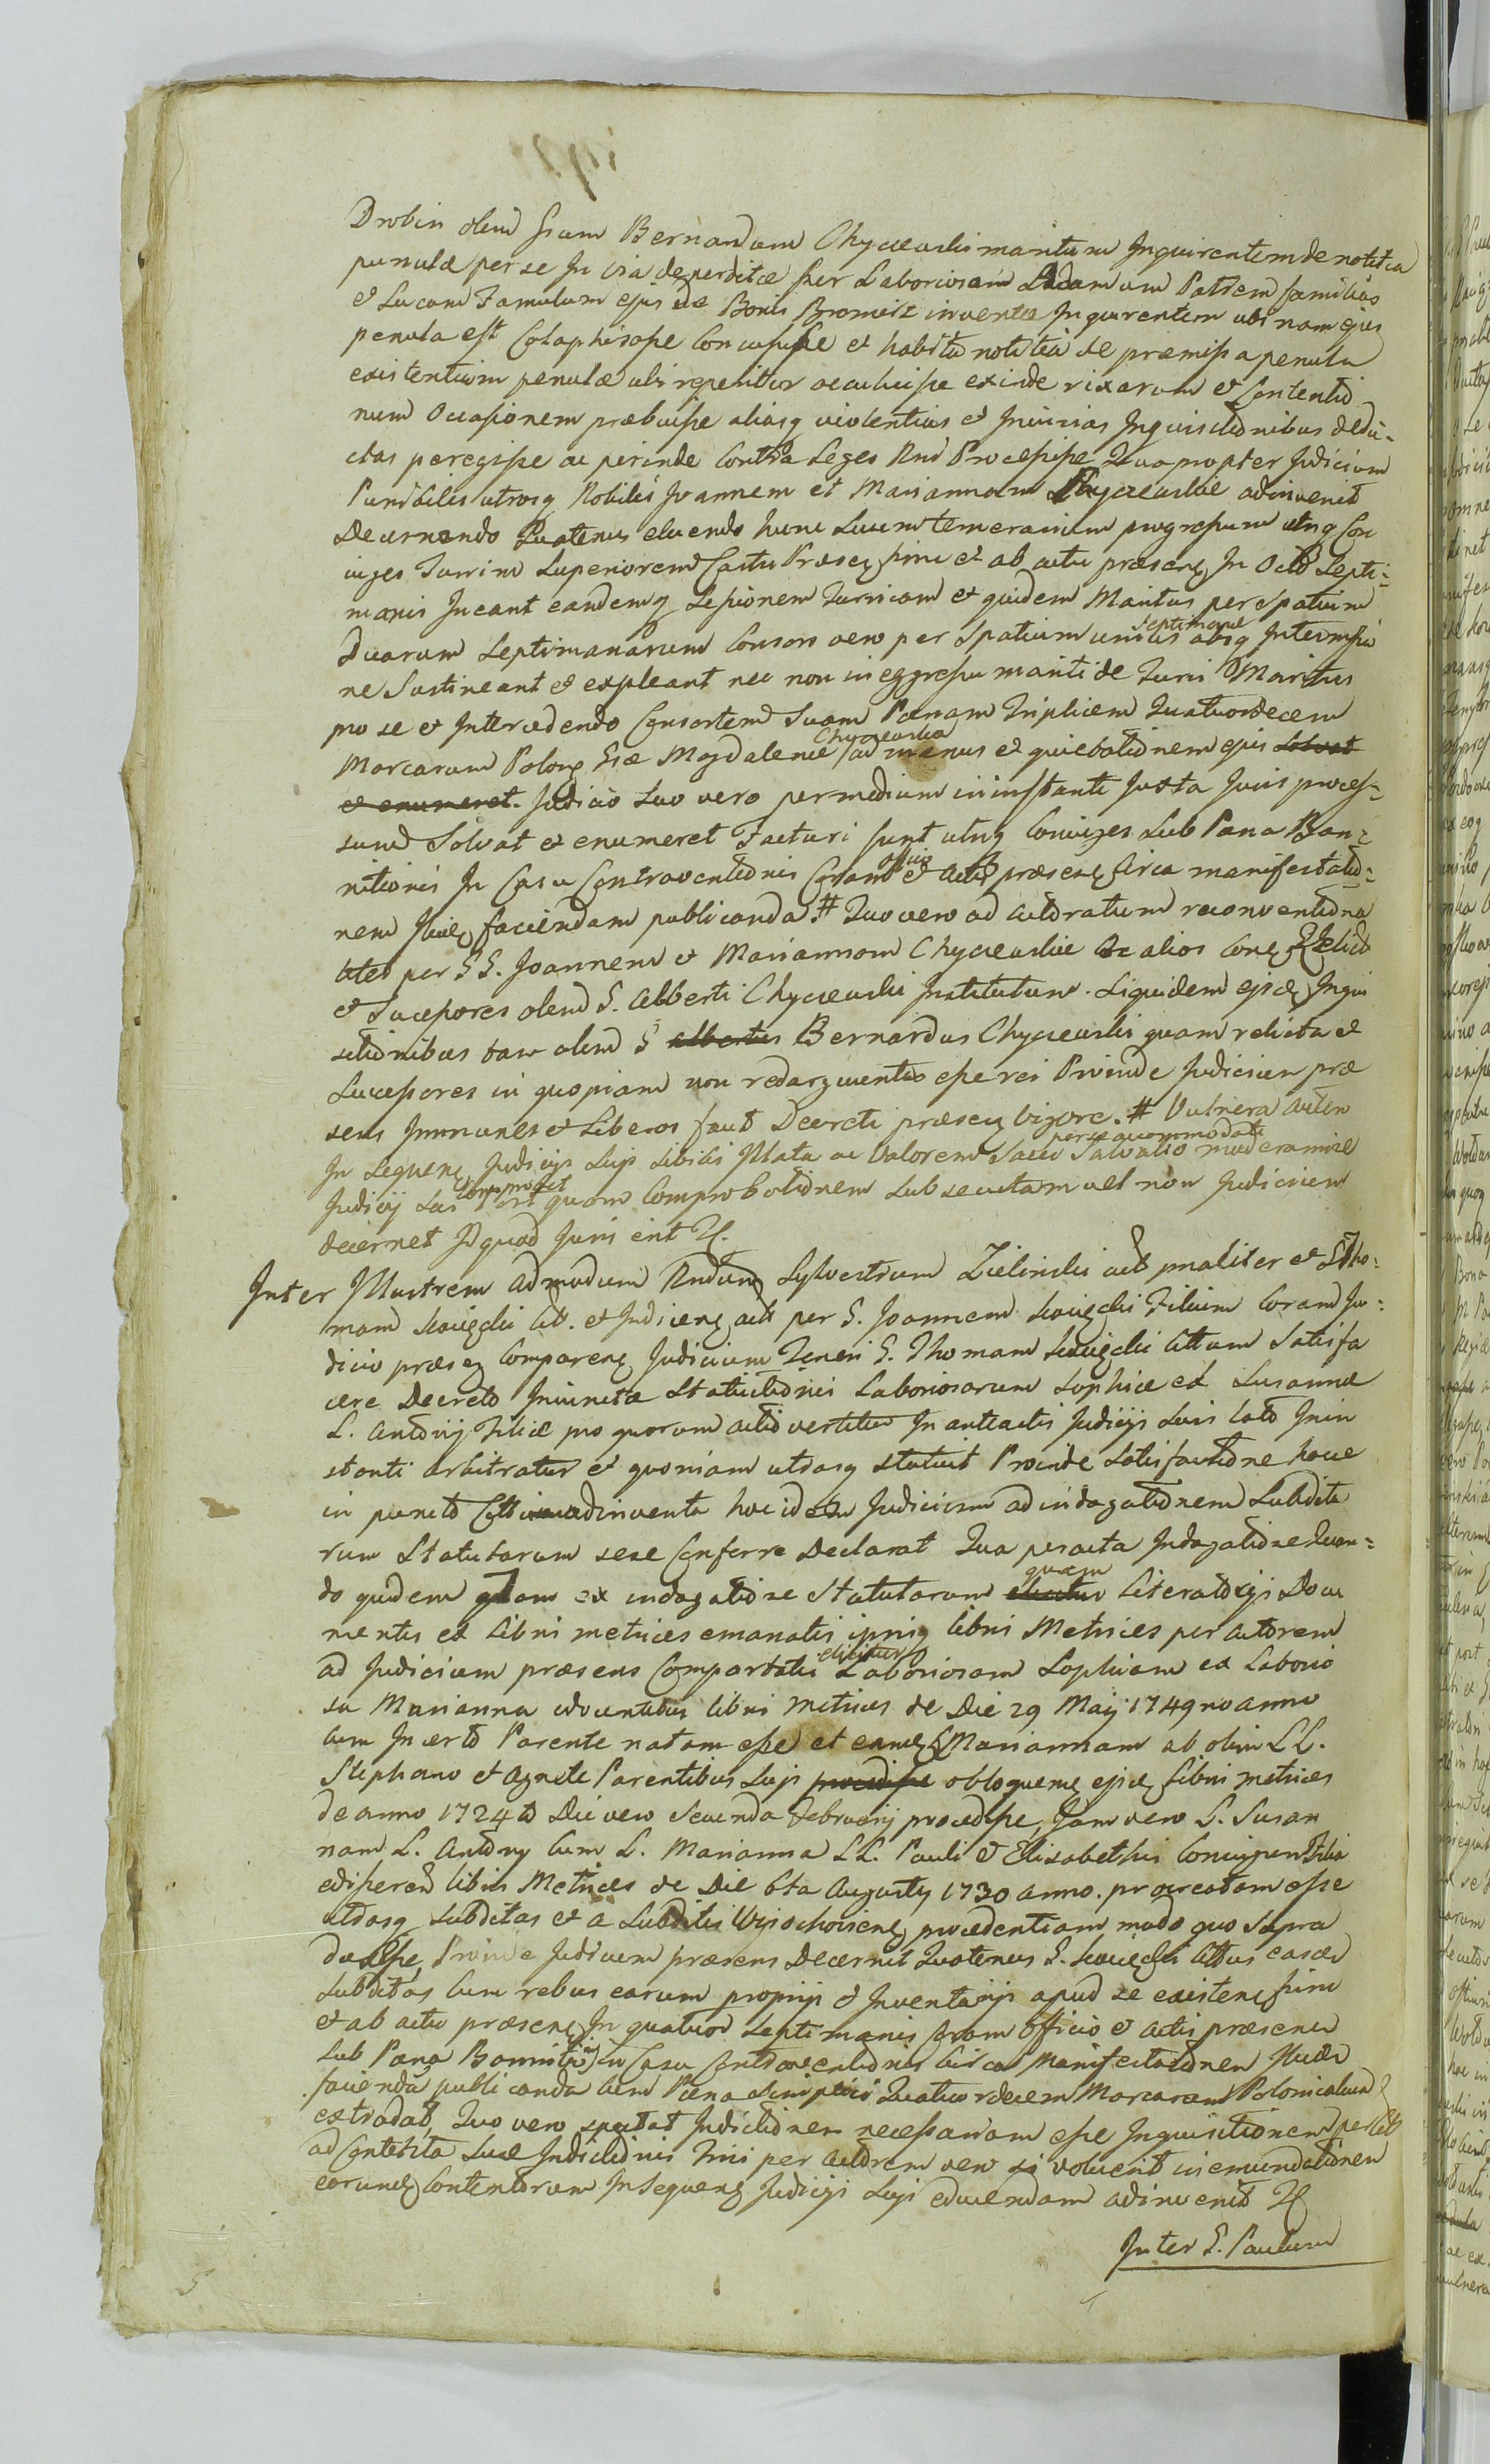 Drobin olim Gsum Bernardum Chyczewski maritum Inquirentem de notitia
penulæ per se In via deperditæ per Laboriosam Adamum Patrem familias
et Lucam Famulum ejus de Bonis Bromierz inventæ Inquirentem ubi nam ejus
penula est Colaphisasse Concussisse et habita notitia de præmissa penula
existentium penulæ ubi reperitur occuluisse exinde rixarum et Contentio
num Occasionem præbuisse aliasq violentias et Injurias Inquisitionibus dedu-
ctas peregisse ac perinde Contra Leges Rni Processisse Quapropter Judicium
Punibiles utrosq Nobiles Joannem et Mariannam Chyczewskie adinvenit
Decernendo Quatenus eluendo hunc Suum temerarium progressum utriq Con
juges Turrim Superiorem Castri Præsen hinc et ab actu præsen In Octo Septi-
manis Ineant eandemq Sessionem Turricam et quidem Maritus per Spatium
Duarum Septimanarum Consors vero per Spatium unius Septimanæ absq Intermissio
ne Sustineant et expleant nec non in egressu mariti de Turri Maritus
pro se et Intercedendo Consortem Suam Pœnam Triplicem Quatuordecem
Marcarum Polon Gsæ Magdalenæ Chyczewska ad manus et quietationem ejus solvat
et enumeret. Judicio suo vero per medium in instanti Juxta Juris proces-
sum Solvat et enumeret Facturi sunt utriq Conjuges Sub Pœna Ban-
nitionis In Casu Contraventionis Coram offio et Actis præsen Circa manifestatio-
nem Illius faciendam publicanda # Quo vero ad actoratum reconventiona
liter per GG. Joannem et Mariannam Chyczewskie ac alios Con Relicta
et Sucessores olim G. Alberti Chyczewski Institutum. Siquidem ejsd Inqui
sitionibus tam olim G Albertus Bernardus Chyczewski quam relicta et
Sucessores in quopiam non redarguentur esse rei Proinde Judicium præ
sens Immunes et Liberos facit Decreti præsen vigore. # Vulnera autem
In Sequen Judicijs Sujs sibi Illata ac Valorem per se accommodati Salvatio moderamine
Judicij sui comprobet Post quam Comprobationem Subsecutam vel non Judicium
decernet Id quod Juris erit &c.
Inter Illustrem Admodum Rndum Sylvestrum Zielinski act pnaliter et G Tho-
mam Act. et Judicen acti per G. Joannem Filium Coram Ju-
dicio præsen Comparen Judicium Teneri G. Thomam Attum Satisfa
cere Decreto Injuncta Statuitionis Laboriosarum Sophiæ et Susannæ
L. Antonij Filiæ pro quarum actio vertitur In anteactis Judicijs Suis lato Inin
stanti arbitratur et quoniam utrasq statuit Proinde Satisfactione hace
in puncto adinventa hoc idem Judicium ad indagationem Subdita
rum Statutarum sese Conferre Declarat Qua peracta Indagatione Quan-
do quidem tam ex indagatione Statutarum elicitur quam Literatorijs Docu
mentis ex Libri metrices emanatis ipsiusq libri Metrices per actorem
ad Judicium præsens Comportatis elicitur Laboriosam Sophiam ex Laborio
sa Marianna edocentibus libri metrices de Die 29 Maij 1749no anno
cum Incerto Parente natam esse et eand Mariannam ab olim LL.
Stephano et Agnete Parentibus Sujs procedisse obloquen ejsd Libri metrices
de anno 1724to Die vero Secunda Februarij processisse, Jam vero L. Susan
nam L. Antony cum L. Marianna LL. Pauli et Elisabethis Conjugum Filia
edisseren libris Metrices de Die 6ta Augusty 1730 anno. procreatam esse
utrasq subditas et a Subditis procedentiam modo quo supra
duxisse, Proinde Judicium præsens Decernit Quatenus G. Attus easdem
Subditas cum rebus earum proprijs et Inventarijs apud se existen hinc
et ab actu præsen In quatuor Septimanis Coram Officio et Actis præsen
Sub Pœna Bannitionis in Casu Contraventionis Circa Manifestationem Illius
facienda publicanda cum Pœna Simplici Quatuordecem Marcarum Polonicalium
extradat, Quo vero spectat Indictionem necessariam esse Inquisitionem per Act
ad Contenta Suæ Indictionis Imi per Actorem vero si voluerit in emundationem
eorund Contentorum In Sequen Judicijs Sujs educendam adinvenit &c
Inter G. Paulum